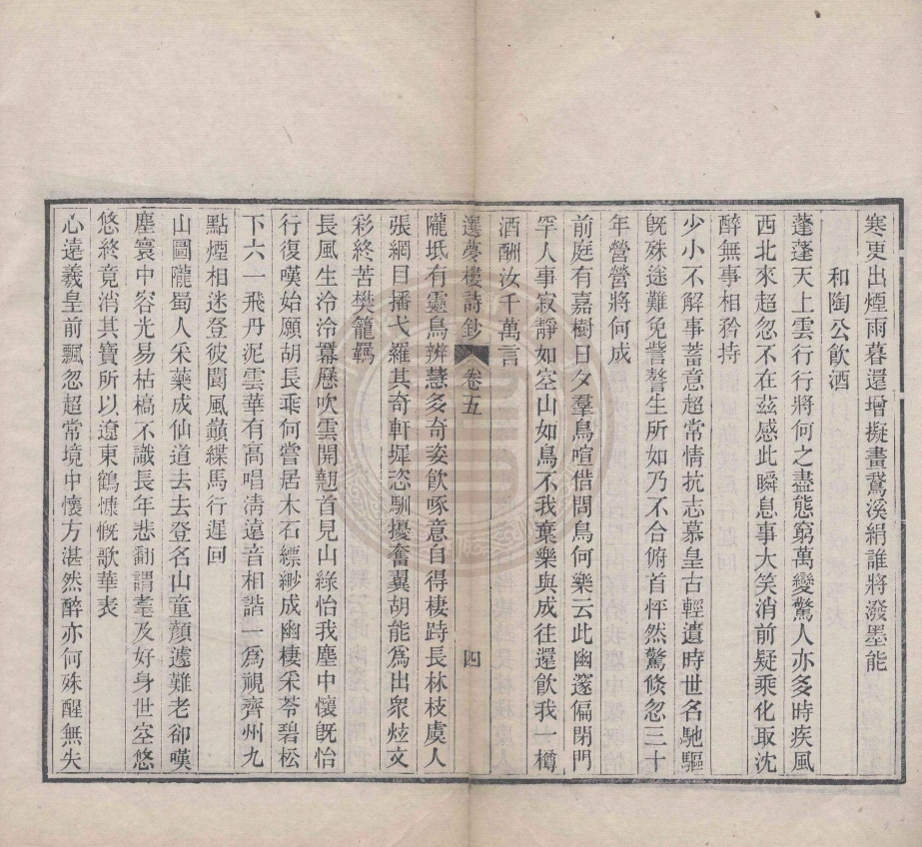 寒更出煙雨暮還增擬畫鵞溪絹誰將潑墨能
和陶公飲酒
蓬蓬天上雲行行將何之盡態窮萬變驚人亦多時疾風
西北來超忽不在茲感此瞬息事大笑消前疑乘化取沈
醉無事相矜持
少小不解事蓄意超常情抗志慕皇古輕遺時世名馳驅
旣殊途難免訾謷生所如乃不合俯首怦然驚倏忽三十
年營營將何成
前庭有嘉樹日夕羣鳥喧借問鳥何樂云此幽邃偏閉門
罕人事寂靜如空山如鳥不我棄樂與成往還飲我一樽
酒酬汝千萬言
選夢樓詩鈔 卷五 四
隴坻有靈鳥辨慧多奇姿飲啄意自得棲跱長林枝虞人
張網目播弋羅其奇軒墀恣馴擾奮翼胡能爲出衆炫文
彩終苦樊籠羈
長風生泠泠羃歷吹雲開翹首見山綠怡我塵中懷旣怡
行復嘆始願胡長乖何嘗居木石縹緲成幽棲采苓碧松
下六一飛丹泥雲華有高唱淸遠音相諧一爲視齊州九
點煙相迷登彼閬風巔緤馬行遲回
山圖隴蜀人采藥成仙道去去登名山童顏遽難老卻嘆
塵寰中容光易枯槁不識長年悲翻謂耄及好身世空悠
悠終竟消其寶所以遼東鶴慷慨歌華表
心遠羲皇前飄忽超常境中懷方湛然醉亦何殊醒無失